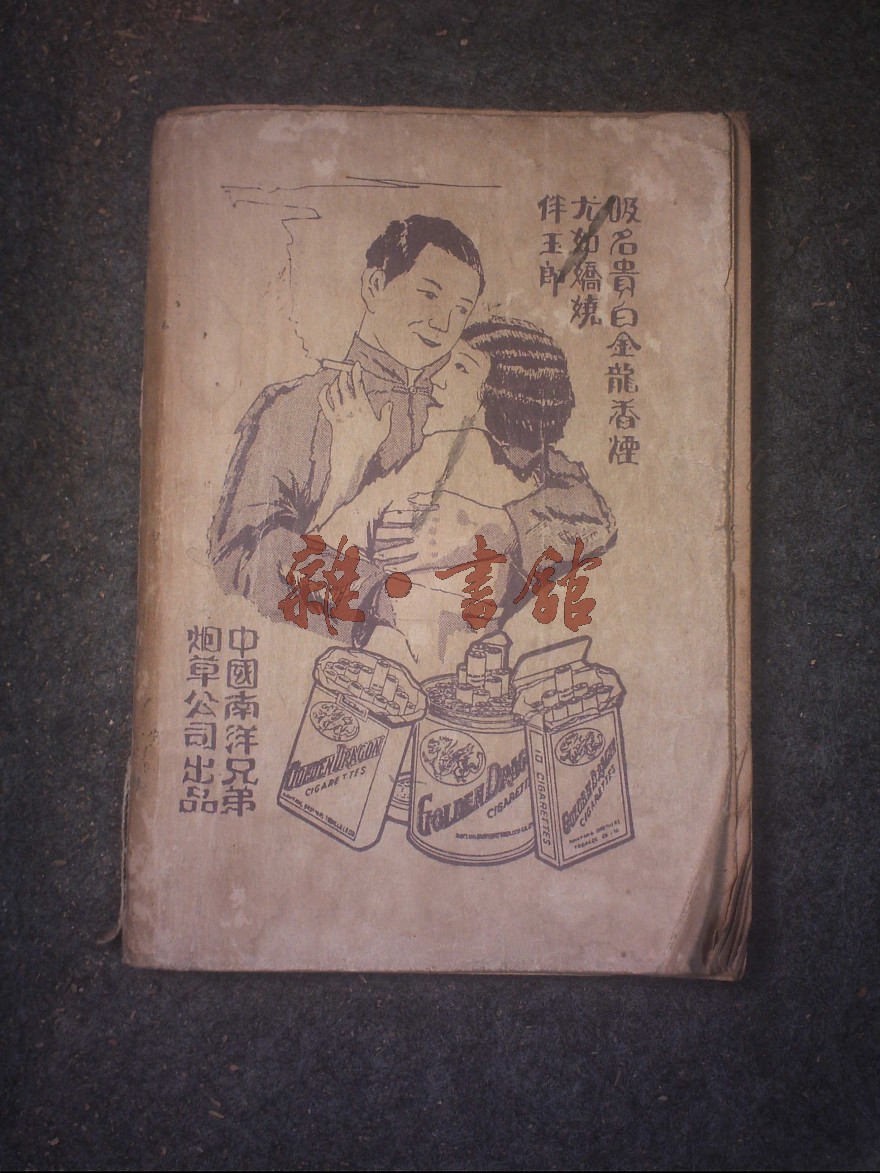 吸名貴白金龍香煙
尤如嬌嬈
伴玉郎
雜·書館
中國南洋兄弟
烟草公司出品
GOLDEN DRAGON
CIGARETTES
GOLDEN DRAG
CIGARETTE
10 CIGARETTES
GOLDEN DRAGON
CIGARETTES
NANYANG BROTHERS
TOBACCO CO. LTD.